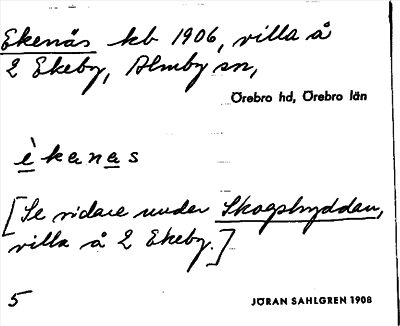 Ekenäs kb 1906, villa å
2 Ekeby, Almby sn,
Örebro hd, Örebro län
èkenas
[Se vidare under Skogshyddan,
villa å 2 Ekeby.]
5
JÖRAN SAHLGREN 1908